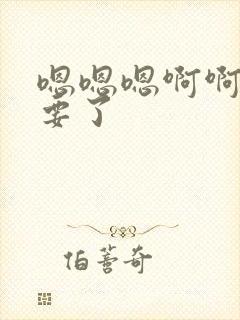 嗯嗯嗯啊啊
要了
伯蓍奇